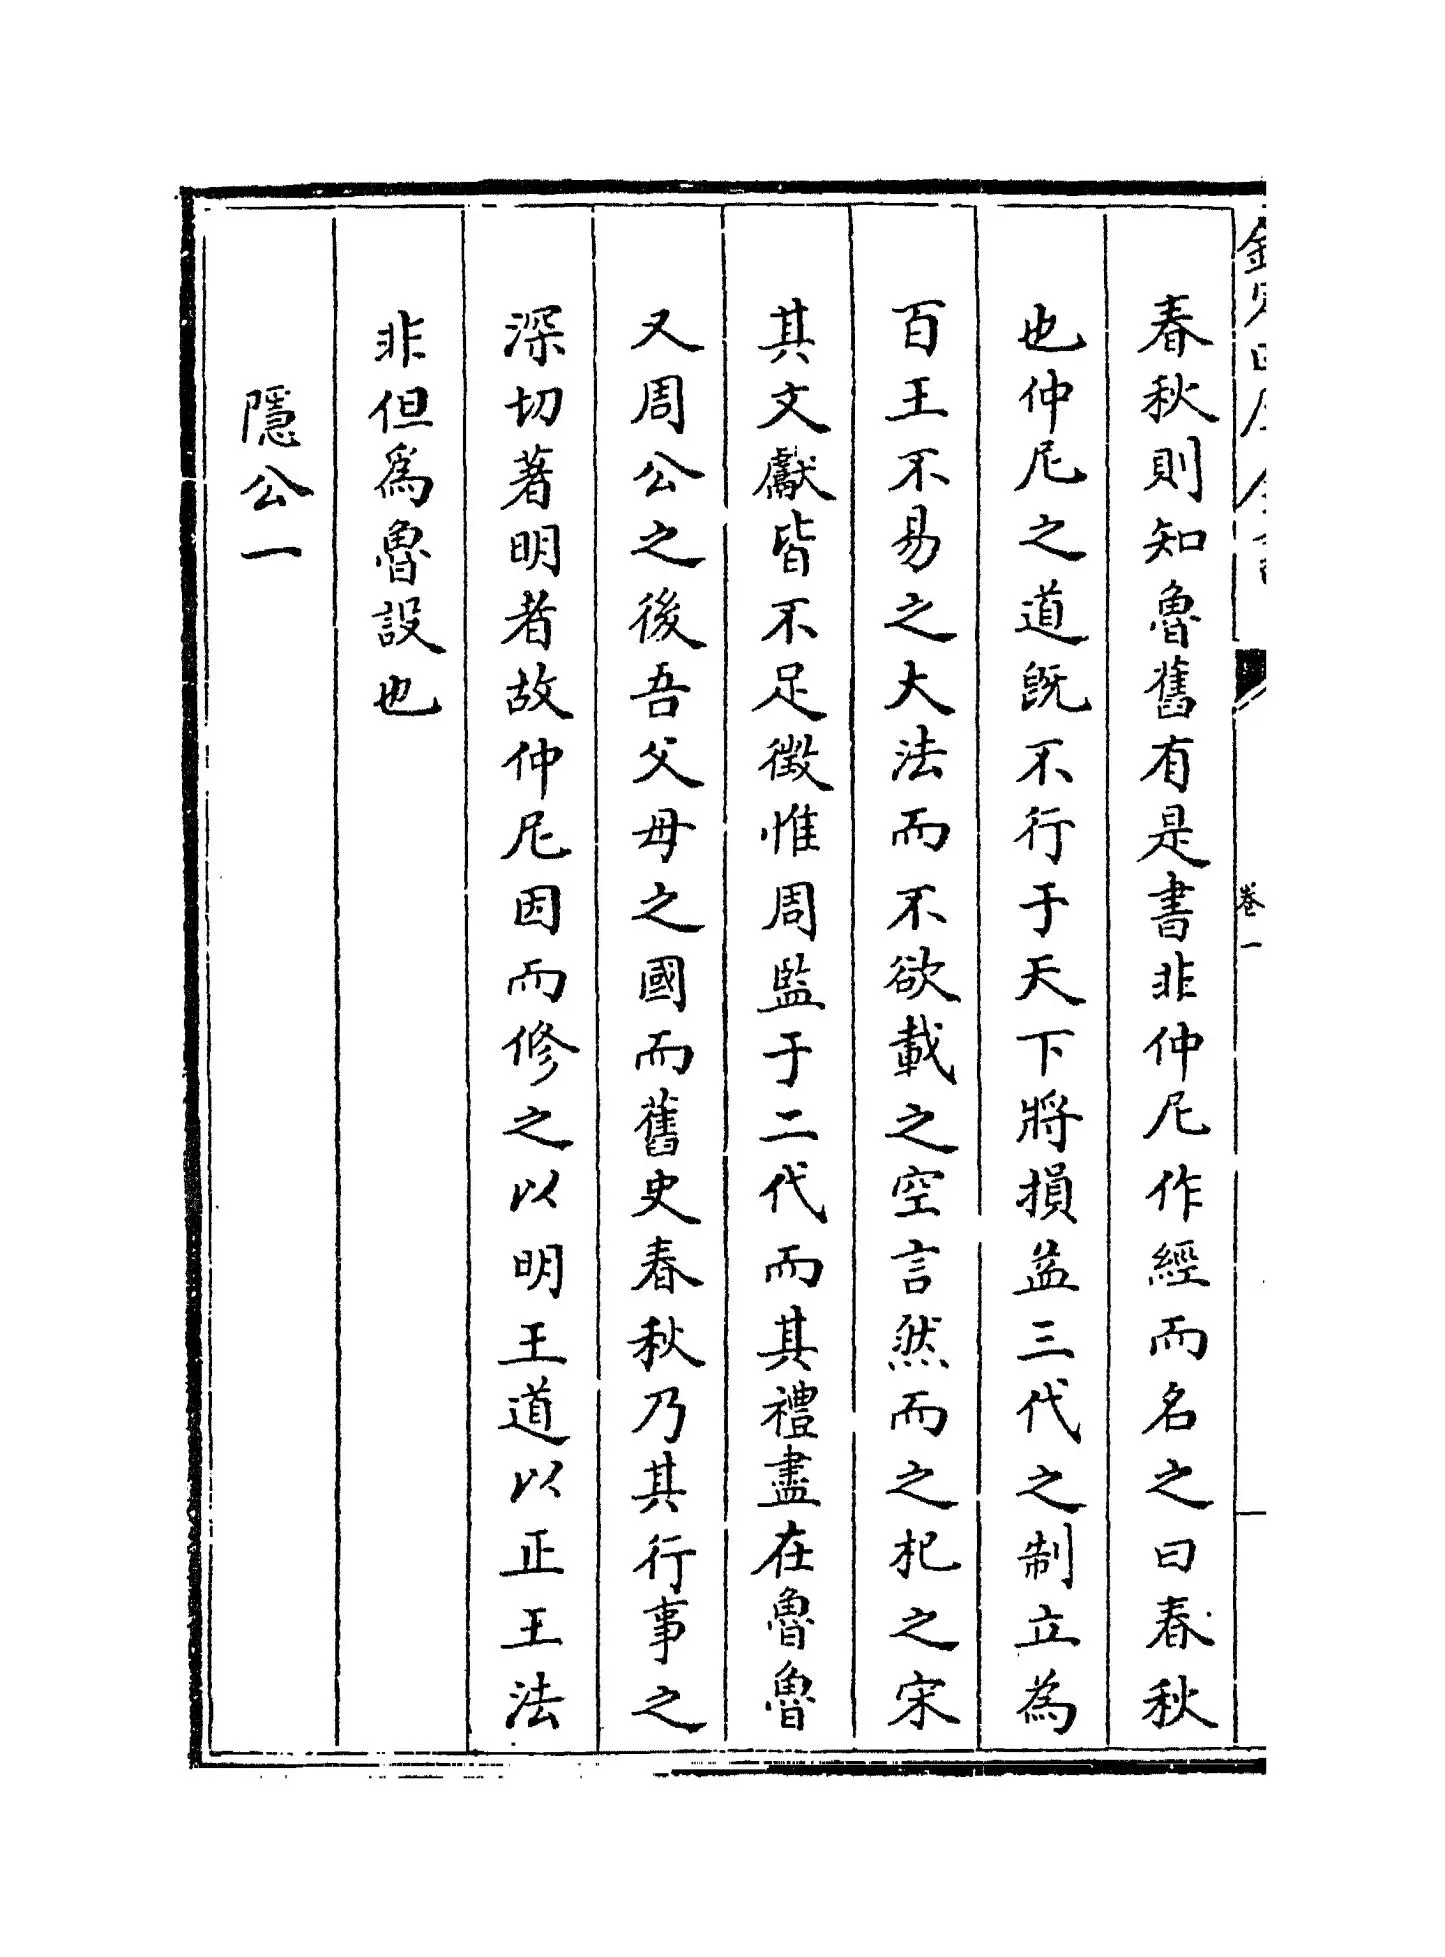 春秋則知魯舊有是書非仲尼作經而名之曰春秋
也仲尼之道旣不行于天下將損益三代之制立為
百王不易之大法而不欲載之空言然而之杞之宋
其文獻皆不足徵惟周監于二代而其禮盡在魯魯
又周公之後吾父母之國而舊史春秋乃其行事之
深切著明者故仲尼因而修之以明王道以正王法
非但爲魯設也
隱公一
卷一